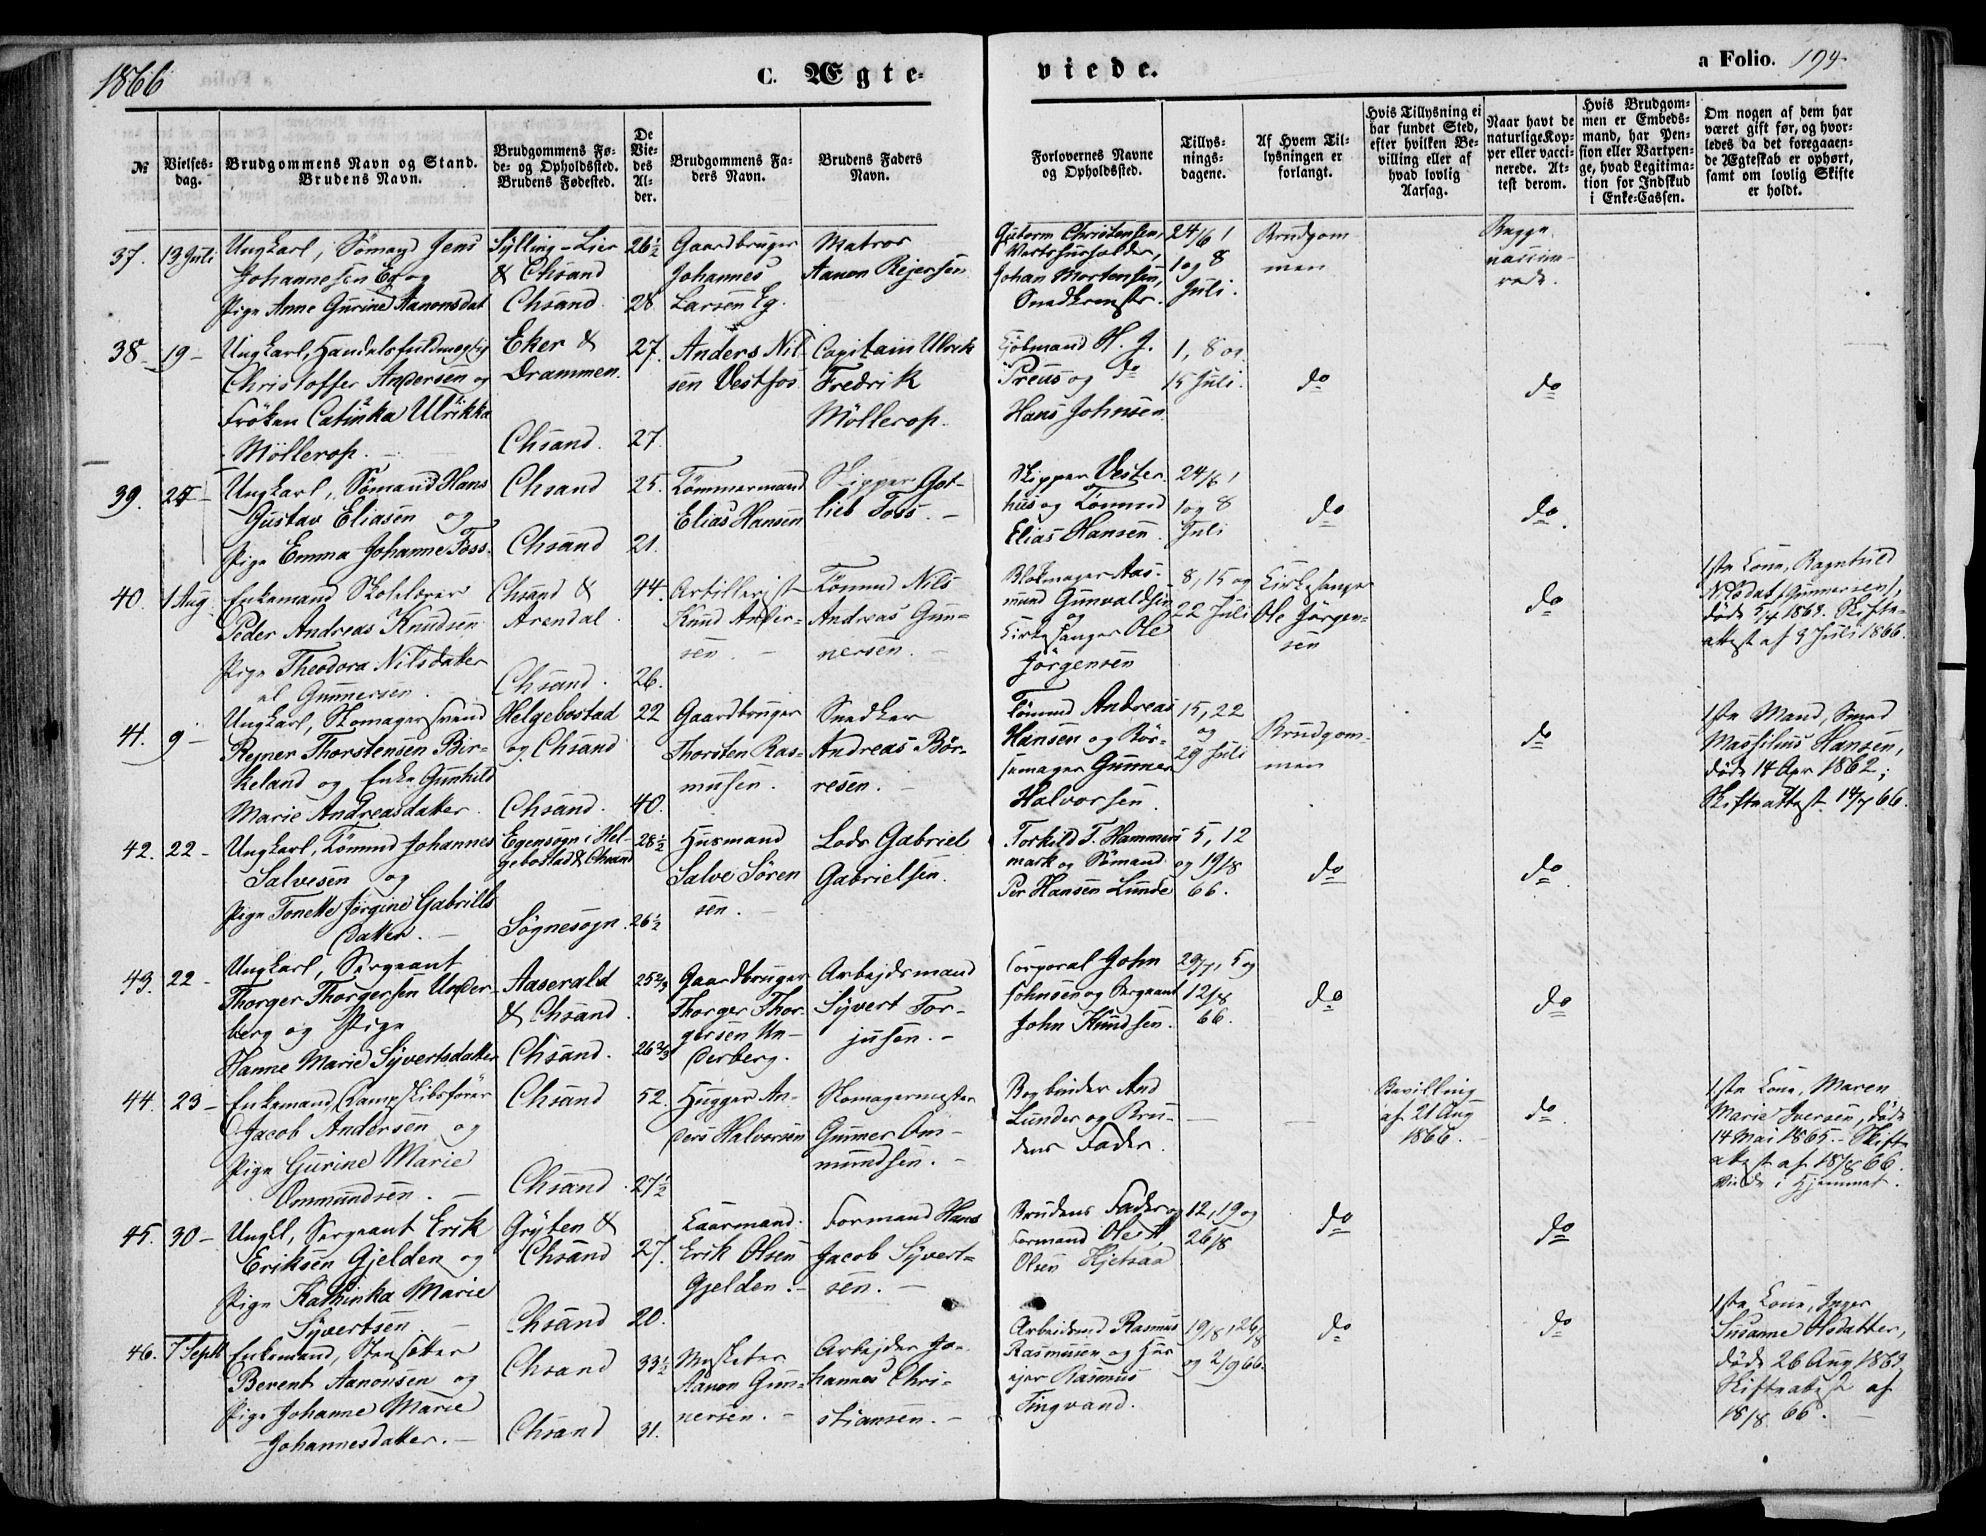 1866
C. Ægte-
viede.
a Folio. 194
№
Vielses-
dag.
Brudgommens Navn og Stand.
Brudens Navn.
Brudgommens Fø-
de- og Opholdssted.
Brudens Fødested.
De
Vie-
des
Al-
der.
Brudgommens Fa-
ders Navn.
Brudens Faders
Navn.
Forlovernes Navne
og Opholdssted.
Tillys-
nings-
dagene.
Af Hvem Til-
lysningen er
forlangt.
Hvis Tillysning ei
har fundet Sted,
efter hvilken Be-
villing eller af
hvad lovlig
Aarsag.
Naar havt de
naturlige Kop-
per eller vacci-
nerede. At-
test derom.
Hvis Brudgom-
men er Embeds-
mand, har Pen-
sion eller Vartpen-
ge, hvad Legitima-
tion for Indskud
i Enke-Cassen.
Om nogen af dem har
været gift før, og hvor-
ledes da det foregaaen-
de Ægteskab er ophørt,
samt om lovlig Skifte
er holdt.
37. 13 Juli
Ungkarl, Sömand Jens
Johannesen Eg og
Pige Anne Gurine Aanonsdat
Sylling-Lier
& Chsand
Chsand
26½
28
Gaardbruger
Johannes
Larsen Eg.
Matros
Aanon Rejersen
Guttorm Christensen,
Vertshusholder,
Johan Mortensen,
Snedkermstr.
24/6,
1 og 8
Juli.
Brudgom-
men
Begge
vaccine-
rede.
38 19 –
Ungkarl, Handelsfuldmægtig
Christoffer Andersen og
Fröken Catinka Ulrikka
Möllerop.
Eker &
Drammen.
Chsand.
27.
27.
Anders Nil-
sen Vestfos
Capitain Ulrik
Fredrik
Möllerop.
Kjöbmand H. J.
Preus og do
Hans Johnsen
1, 8 og
15 Juli.
do
do
39. 25 –
Ungkarl, Sömand Hans
Gustav Eliasen og
Pige Emma Johanne Foss.
Chsand
Chsand
25.
21.
Tömmermand
Elias Hansen
Skipper Got-
lieb Foss. –
Skipper Vester-
hus og Tömmd
Elias Hansen.
24/6,
1 og 8
Juli
do
do.
40. 1 Aug.
Enkemand Skolelærer
Peder Andreas Knudsen
Pige Theodora Nilsdatter
el Gunnersen.
Chsand &
Arendal.
Chsand.
44.
26.
Artillerist
Knud Ander-
sen. –
Tömmd Nils
Andreas Gun-
nersen. –
Blokmager Aas-
mund Gunvaldsen
og
Kirkesanger Ole
Jörgensen
8, 15 og
22 Juli
Kirkesanger
Ole Jörgen-
sen
do
1ste Kone, Ragnhild
Nilsdat (Gunnersen),
döde 5/4 1863. Skifte-
attest af 9 Juli 1866.
41. 9 –
Ungkarl, Skomagersvend
Rejner Thorstensen Bir-
keland og Enke Gunhild
Marie Andreasdatter.
Helgebostad
og Chsand
Chsand.
22
40.
Gaardbruger
Thorsten Ras-
musen.
Snedker
Andreas Bör-
resen. –
Tömmd Andreas
Hansen og Bös-
semager Gunner
Halvorsen
15, 22
og
29 Juli
Brudgom-
men
do
1ste Mand, Smed
Massilius Hansen,
döde 14 Apr 1862;
Skifteattest 14/7 66.
42. 22 –
Ungkarl, Tömmd Johannes
Salvesen og
Pige Tonette Jörgine Gabriells
datter. –
Egensogn i Hel-
gebostad & Chsand
Sögnesogn.
28½
26½
Husmand
Salve Sören
sen. –
Lods Gabriel
Gabrielsen.
Torkild T. Hammers-
mark og Sömand
Per Hansen Lunde
5, 12
og 19/8
66.
do
do.
43. 22 –
Ungkarl, Sergeant
Thorger Thorgersen Under-
berg og Pige
Hanne Marie Syvertsdatter
Aaserald
& Chsand.
Chsand.
25⅔
26⅔
Gaardbruger
Thorger Thor-
gersen Un-
derberg.
Arbejdsmand
Syvert Tor-
jusen. –
Corporal John
Johnsen og Sergeant
John Knudsen.
29/7, 5 og
12/8
66.
do
do
44. 23 –
Enkemand, Dampskibsförer
Jacob Andersen og
Pige Gurine Marie
Ommundsen. –
Chsand
Chsand.
52.
27½
Hugger An-
ders Halvorsen
Skomagermester
Gunner Om-
mundsen. –
Bogbinder And
Lunder og Bru-
dens Fader.
Bevilling
af 21 Aug
1866. –
do.
1ste Kone, Maren
Marie Iversen, döde
14 Mai 1865. – Skifte
attest af 18/8 66.
Viede i Hjemmet.
45. 30 –
Ungkl, Sergeant Erik
Eriksen Gjelden og
Pige Kathinka Marie
Syvertsen –
Gryten &
Chsand
Chsand
27.
20.
Erik Olsen
Gjelden. –
Formand Hans
Jacob Syvert-
sen. –
Brudens Fader og
Formand
Olsen Hjetsaa
12, 19 og
26/8
do
do
46. 7 Sept
Enkemand, Stensætter
Berent Aanonsen og
Pige Johanne Marie
Johannesdatter. –
Chsand
Chsand
33½
31.
Musketer
Aanon Gun-
nersen. –
Arbejder Jo-
hannes Chri-
stiansen. –
Arbeidsmd Rasmus
Rasmusen og Hus-
ejer Rasmus
Tingvand.
19/8, 26/8
og 2/9 66.
do
do
1ste Kone, Inger
Susanne Olsdatter,
döde 26 Aug 1863
Skifteattest af
18/8 66. –